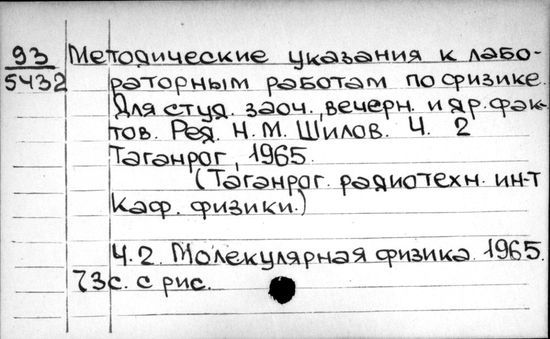 93
5432
Методические указания к лабо-
раторным работам по физике.
Для студ. заоч., вечерн. и др. фак-
тов. Ред. Н. М. Шилов. Ч. 2
Таганрог, 1965.
(Таганрог. радиотехн. ин-т
Каф. физики.)
Ч. 2. Молекулярная физика. 1965.
73 с. с рис.